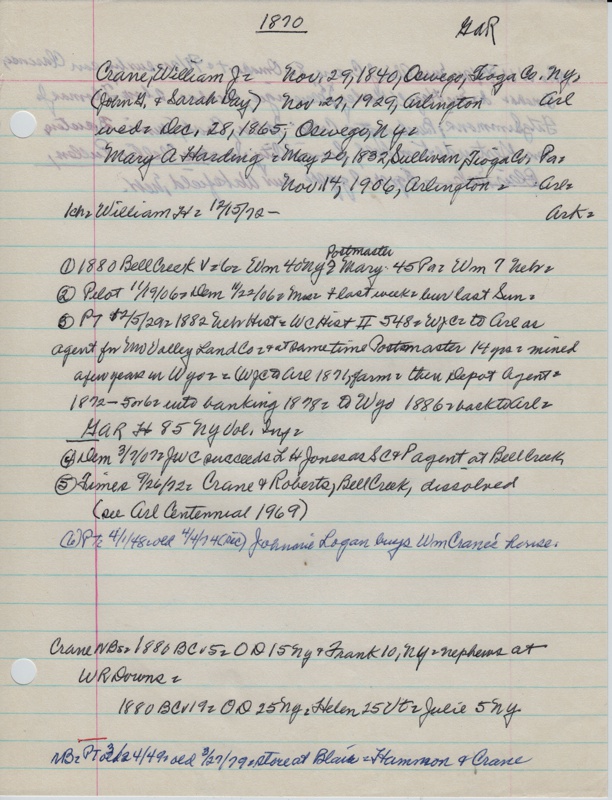 1870
GAR
Crane, William J = Nov. 29, 1840, Oswego, Tioga Co. Ny,
(John G. & Sarah Day) Nov. 27, 1929, Arlington Arl
wed = Dec, 28, 1865, Oswego, Ny =
Mary A Harding = May 20, 1832, Sullivan, Tioga Co, Pa =
Nov. 14, 1906, Arlington = Arl =
1ch = William H = 12/15/72 - Ark =
Postmaster
① 1880 Bell Creek V=6= Wm 40 Ny = Mary 45 Pa = Wm 7 Nebr =
② Pilot 11/19/06 = Dem 11/22/06 = Mrs = + last week = bur last Sun =
③ PT 12/5/29 = 1882 Nebr Hist = WC Hist II 548 = WJC to Arl as
agent for Mo Valley Land Co = + at same time Postmaster 14 yrs = mined
a few years in Wyo = = WJC to Arl 1871, farm = then Depot Agent =
1872 - 5 or 6 = into banking 1878 = to Wyo 1886 = back to Arl =
GAR H 85 Ny Vol. Inf =
④ Dem 3/7/07 = JWC succeeds L H Jones as SC & P agent at Bell Creek,
⑤ Times 9/26/72 = Crane & Roberts, Bell Creek, dissolved
(see Arl Centennial 1969)
(6) PT= 4/1/48 = old 4/4/74 (sic) Johnnie Logan buys Wm Crane's house.
Crane NB5 = 1880 BC v5 = OD 15 Ny + Frank 10, Ny = nephews at
WR Downs =
1880 BC v19 = OD 25 Ny = Helen 25 Vt = Julie 5 Ny
NB = PT 3/24/49 = old 3/27/79 = store at Blair = Hammon & Crane